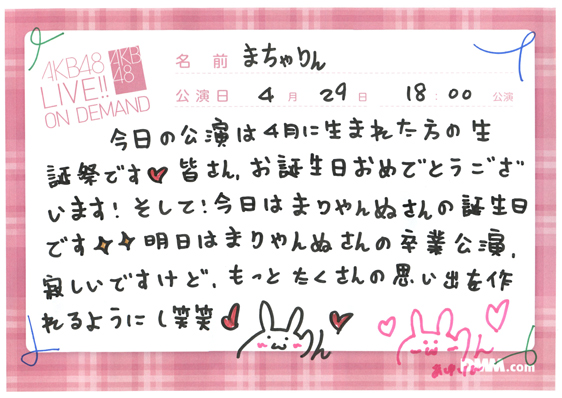 AKB48
LIVE!!
ON DEMAND
AKB
48
名前 まちゃりん
公演日 4月 29日 18:00 公演
今日の公演は4月に生まれた方の生
誕祭です 皆さん、お誕生日おめでとうござ
います！そして！今日はまりやんぬさんの誕生日
です 明日はまりやんぬさんの卒業公演、
寂しいですけど、もっとたくさんの思い出を作
れるように！笑笑
りん
りん
DMM.com